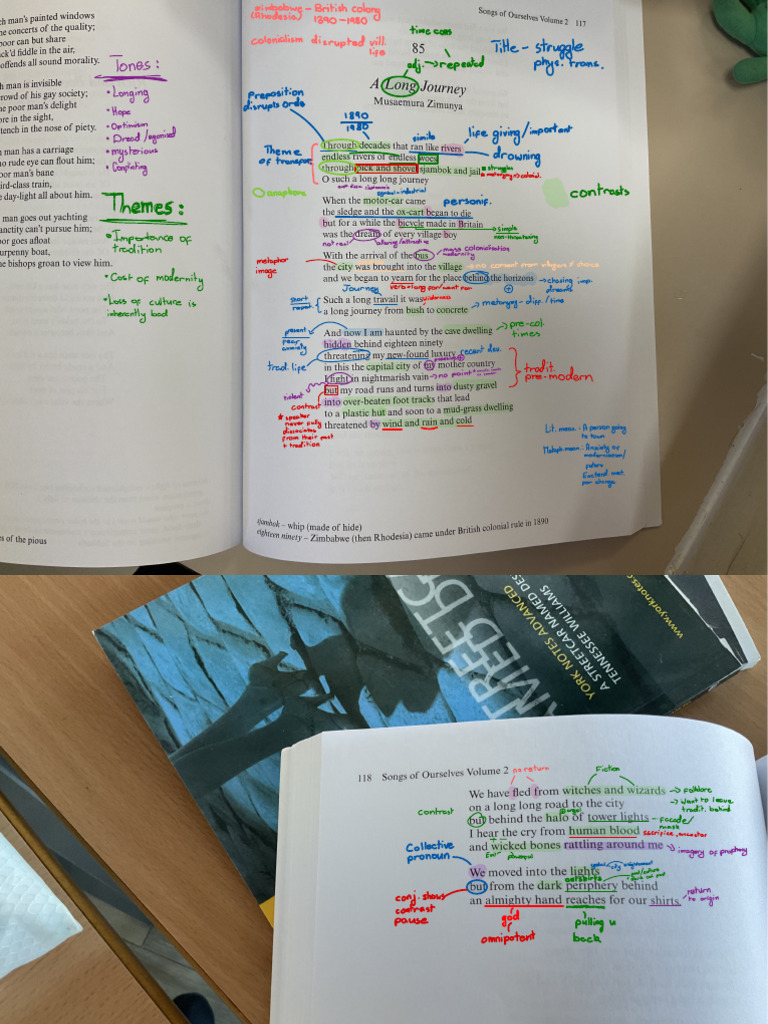 ch man's painted windows
he concerts of the quality;
poor can but share
ck'd fiddle in the air,
offends all sound morality.
h man is invisible
crowd of his gay society;
he poor man's delight
ore in the sight,
stench in the nose of piety.
man has a carriage
no rude eye can flout him;
oor man's bane
ird-class train,
e day-light all about him.
man goes out yachting
anctity can't pursue him;
oor goes afloat
urpenny boat,
he bishops groan to view him.
s of the pious
Tones:
• Longing
• Hope
• Optimism
• Dread/agonised
• mysterious
• Conflicting
Themes:
• Importance of tradition
• Cost of modernity
• Loss of culture is inherently bad
Zimbabwe - British colony
(Rhodesia) 1890-1980
colonialism disrupted vill. life
Songs of Ourselves Volume 2 117
time cons
85
adj. → repeated
Title - struggle
phys. trans.
A Long Journey
Musaemura Zimunya
Preposition
disrupts ordo
1890
1980
simile
Theme
of transport
Through decades that ran like rivers
endless rivers of endless woes
through pick and shovel sjambok and jail
O such a long long journey
life giving/important
drowning
anaphora
symbol-industrial
contrasts
When the motor-car came
personif.
the sledge and the ox-cart began to die
but for a while the bicycle made in Britain
was the dream of every village boy
simple
non-threatening
not real
With the arrival of the bus
mass colonialisation
modernity
the city was brought into the village
no consent from villagers/choice
metaphor
image
and we began to yearn for the place behind the horizons
chasing imp. dreams
Journey
Such a long travail it was
a long journey from bush to concrete
metaphor - diff./time
start
repeat
And now I am haunted by the cave dwelling
pre-col. times
hidden behind eighteen ninety
threatening my new-found luxury
recent dev.
in this the capital city of my mother country
I fight in nightmarish vain
no point
but my road runs and turns into dusty gravel
into over-beaten foot tracks that lead
to a plastic hut and soon to a mud-grass dwelling
threatened by wind and rain and cold
present
fear
anxiety
trad. life
tradit.
pre-modern
violent
contrast
* speaker
never fully
dissociates
from their past
+ tradition
Lit. mean.: A person going
to town
Metaph. mean.: Anxiety of
modernisation/
future
sjambok – whip (made of hide)
eighteen ninety – Zimbabwe (then Rhodesia) came under British colonial rule in 1890
YORK NOTES ADVANCED
A STREETCAR NAMED DES
TENNESSEE WILLIAMS
www.yorknotes.c
118 Songs of Ourselves Volume 2
no return
Fiction
We have fled from witches and wizards
→ folklore
on a long long road to the city
→ want to leave
tradit. behind
contrast
but behind the halo of tower lights
facade/
mask
I hear the cry from human blood
sacrifice, ancestor
and wicked bones rattling around me
imagery of prophecy
Collective
pronoun
We moved into the lights
but from the dark periphery behind
outskirts
an almighty hand reaches for our shirts
return
to origin
conj. shows
contrast
pause
god
omnipotent
pulling u
back